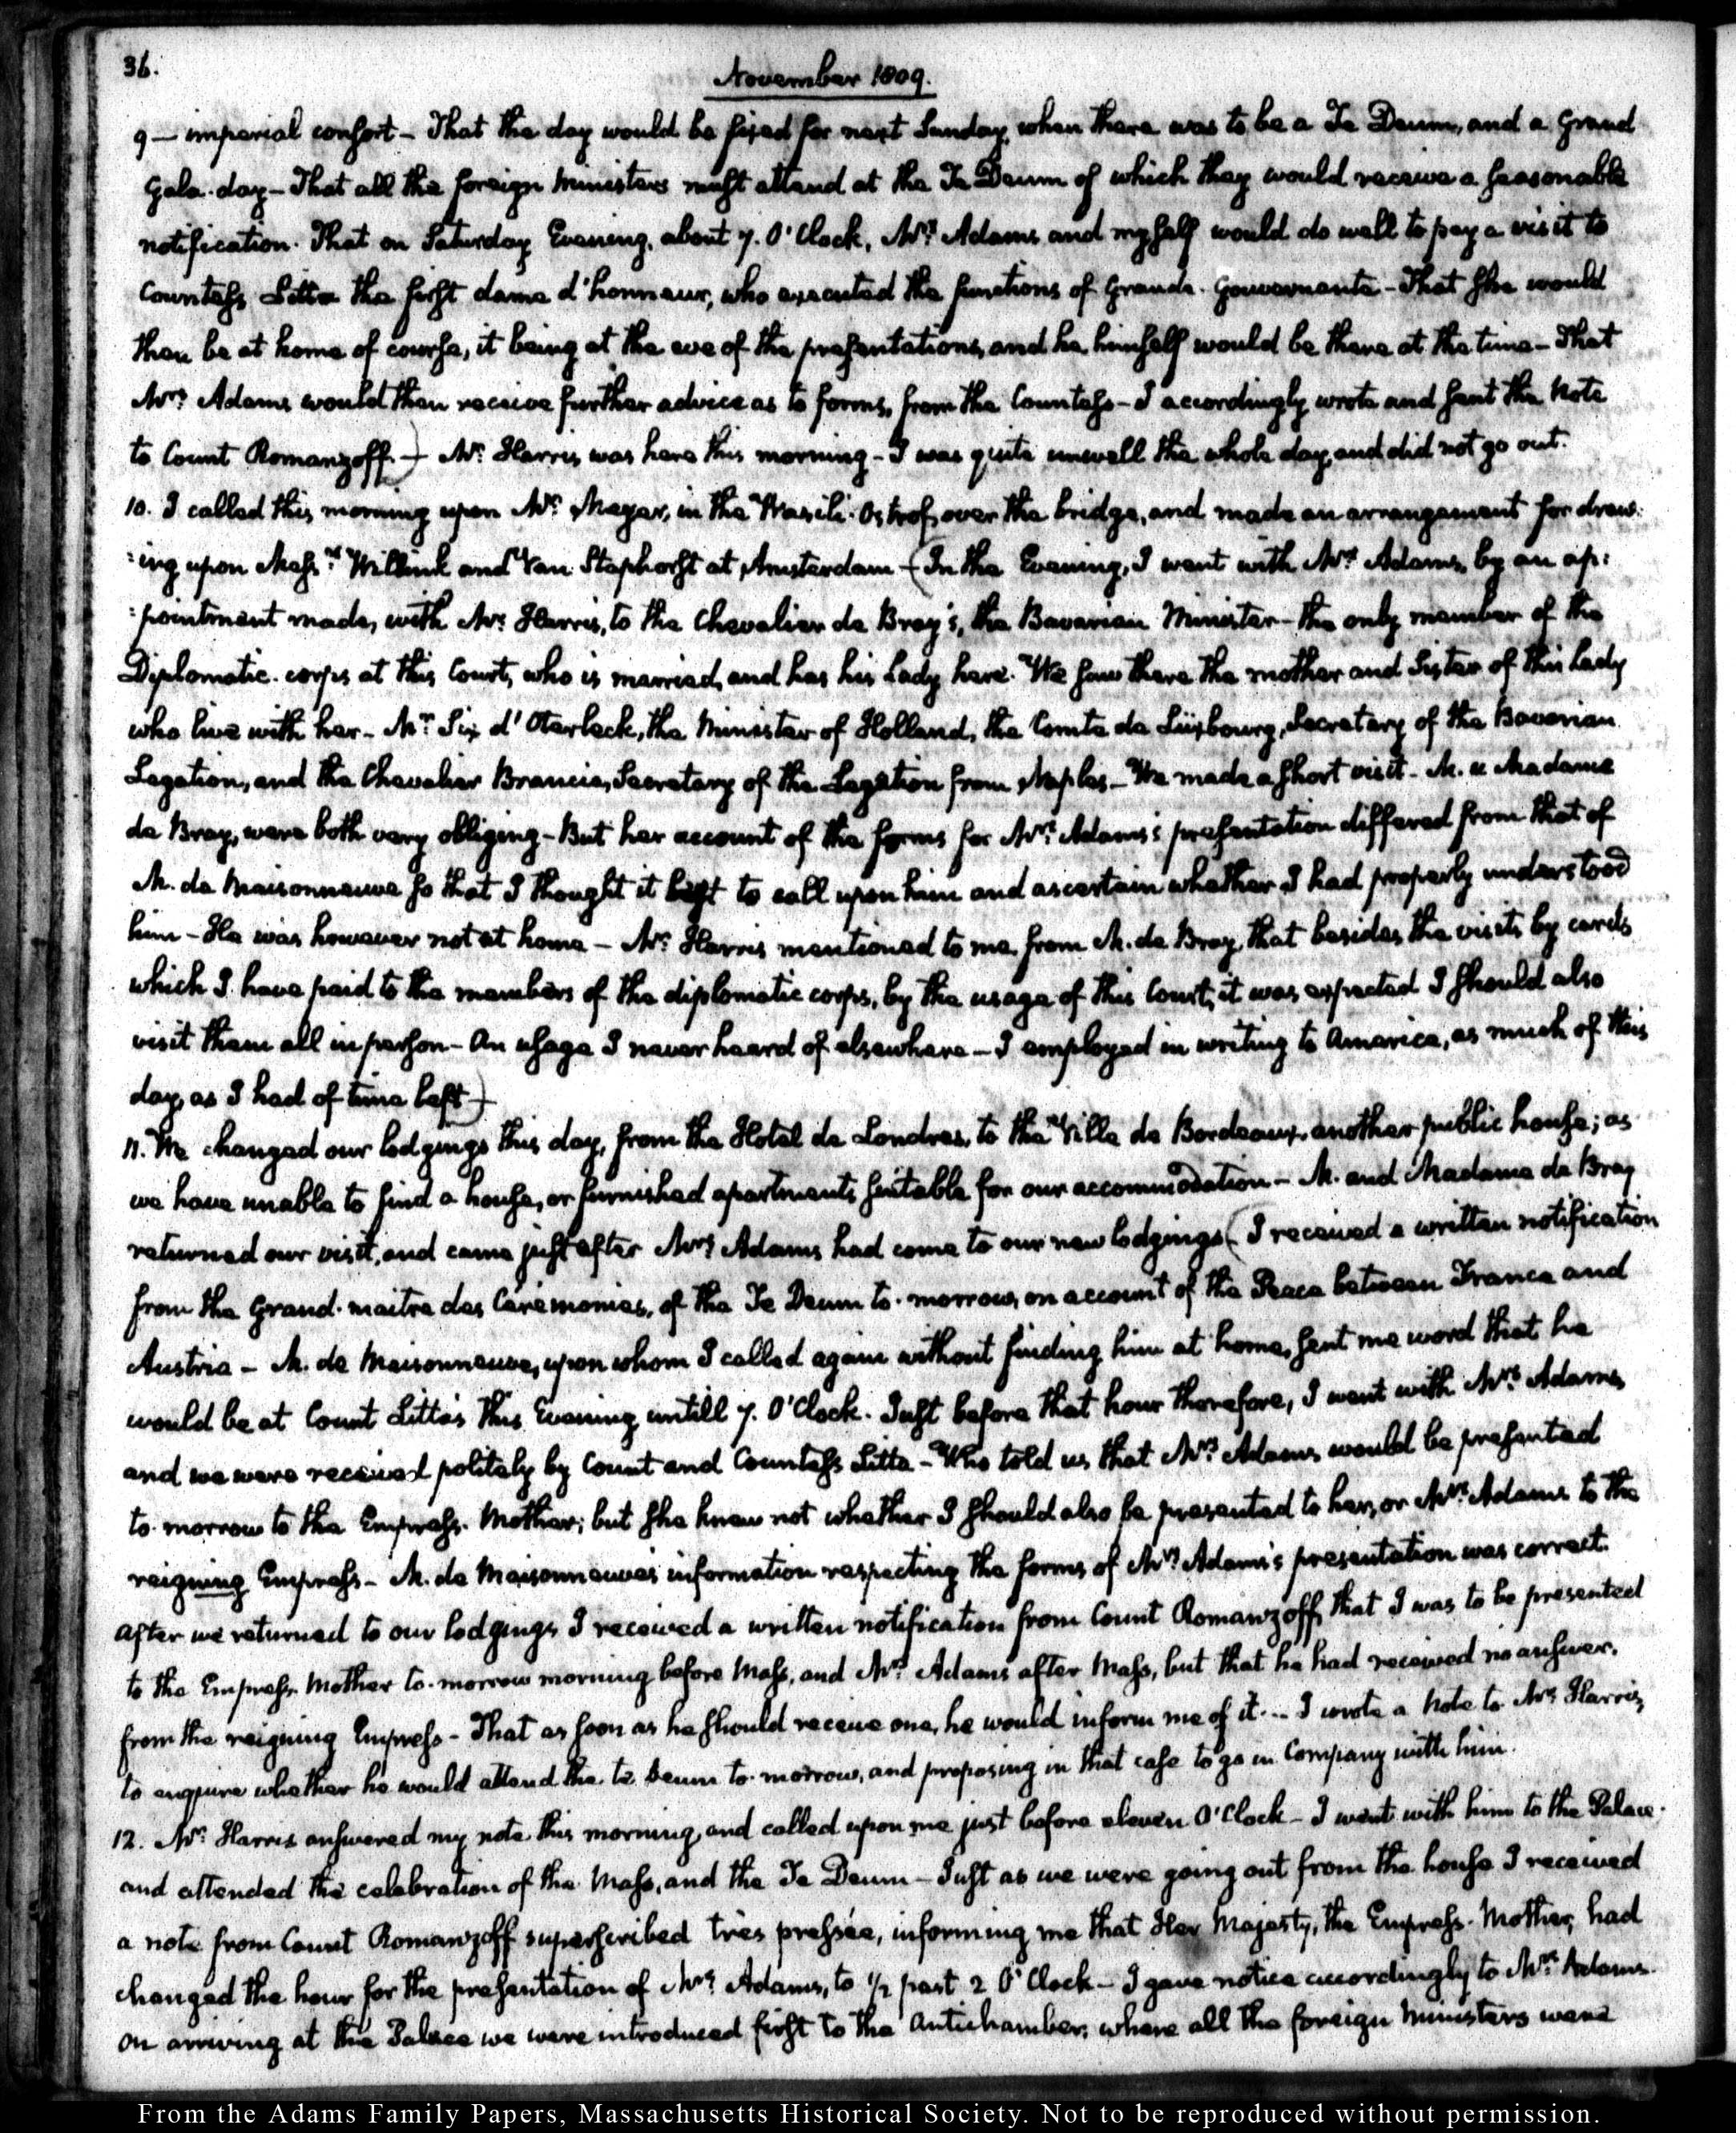 36.
November 1809.
9 — imperial consort - That the day would be fixed for next Sunday, when there was to be a Te Deum, and a grand
Gala-day - That all the foreign Ministers must attend at the Te Deum of which they would receive a seasonable
notification. That on Saturday Evening, about 7. O'Clock, Mrs. Adams and myself would do well to pay a visit to
Countess Litta the first dame d'honneur, who executed the functions of Grande-Gouvernante - That she would
then be at home of course, it being at the eve of the presentations, and he himself would be there at the time - That
Mrs. Adams would then receive further advice as to forms, from the Countess - I accordingly wrote and sent the Note
to Count Romanzoff.) - Mr. Harris was here this morning - I was quite unwell the whole day, and did not go out.
10. I called this morning upon Mr. Meyer, in the Wasili-Ostrof, over the bridge, and made an arrangement for draw-
:ing upon Messrs. Willink and Van Staphorst at Amsterdam - (In the Evening, I went with Mrs. Adams, by an ap:
:pointment made, with Mr. Harris, to the Chevalier de Bray's, the Bavarian Minister - the only member of the
Diplomatic-corps at this Court, who is married, and has his Lady here. We saw there the mother and Sister of this Lady
who live with her - Mr. Six d'Oterbeck, the Minister of Holland, the Comte de Luxbourg, Secretary of the Bavarian
Legation, and the Chevalier Brancia, Secretary of the Legation from Naples - We made a short visit - M. & Madame
de Bray, were both very obliging - But her account of the forms for Mrs. Adams's presentation differed from that of
M. de Maisonneuve so that I thought it best to call upon him and ascertain whether I had properly understood
him - He was however not at home - Mr. Harris mentioned to me from M. de Bray, that besides the visits by cards
which I have paid to the members of the diplomatic corps, by the usage of this Court, it was expected I should also
visit them all in person - An usage I never heard of elsewhere - I employed in writing to America, as much of this
day, as I had of time left)
11. We changed our lodgings this day, from the Hotel de Londres, to the Ville de Bordeaux, another public house; as
we have unable to find a house, or furnished apartments suitable for our accommodation - M. and Madame de Bray
returned our visit, and came just after Mrs. Adams had come to our new lodgings (I received a written notification
from the Grand-maitre des Céremonies, of the Te Deum to-morrow, on account of the Peace between France and
Austria - M. de Maisonneuve, upon whom I called again without finding him at home, sent me word that he
would be at Count Litta's this Evening untill 7. O'Clock. Just before that hour therefore, I went with Mrs. Adams,
and we were received politely by Count and Countess Litta - Who told us that Mrs. Adams would be presented
to-morrow to the Empress-Mother; but she knew not whether I should also be presented to her, or Mrs. Adams to the
reigning Empress - M. de Maisonneuve's information respecting the forms of Mrs. Adams's presentation was correct.
After we returned to our lodgings I received a written notification from Count Romanzoff, that I was to be presented
to the Empress Mother to-morrow morning before Mass, and Mrs. Adams after Mass, but that he had received no answer,
from the reigning Empress - That as soon as he should receive one, he would inform me of it... I wrote a Note to Mr. Harris,
to enquire whether he would attend the te Deum to-morrow, and proposing in that case to go in Company with him.
12. Mr. Harris answered my note this morning, and called upon me just before eleven O'Clock - I went with him to the Palace.
and attended the celebration of the Mass, and the Te Deum - Just as we were going out from the house I received
a note from Count Romanzoff superscribed très pressée, informing me that Her Majesty, the Empress-Mother, had
changed the hour for the presentation of Mrs. Adams, to 1/2 past 2 O'Clock - I gave notice accordingly to Mrs. Adams.
On arriving at the Palace we were introduced first to the Antichamber, where all the foreign Ministers were
From the Adams Family Papers, Massachusetts Historical Society. Not to be reproduced without permission.